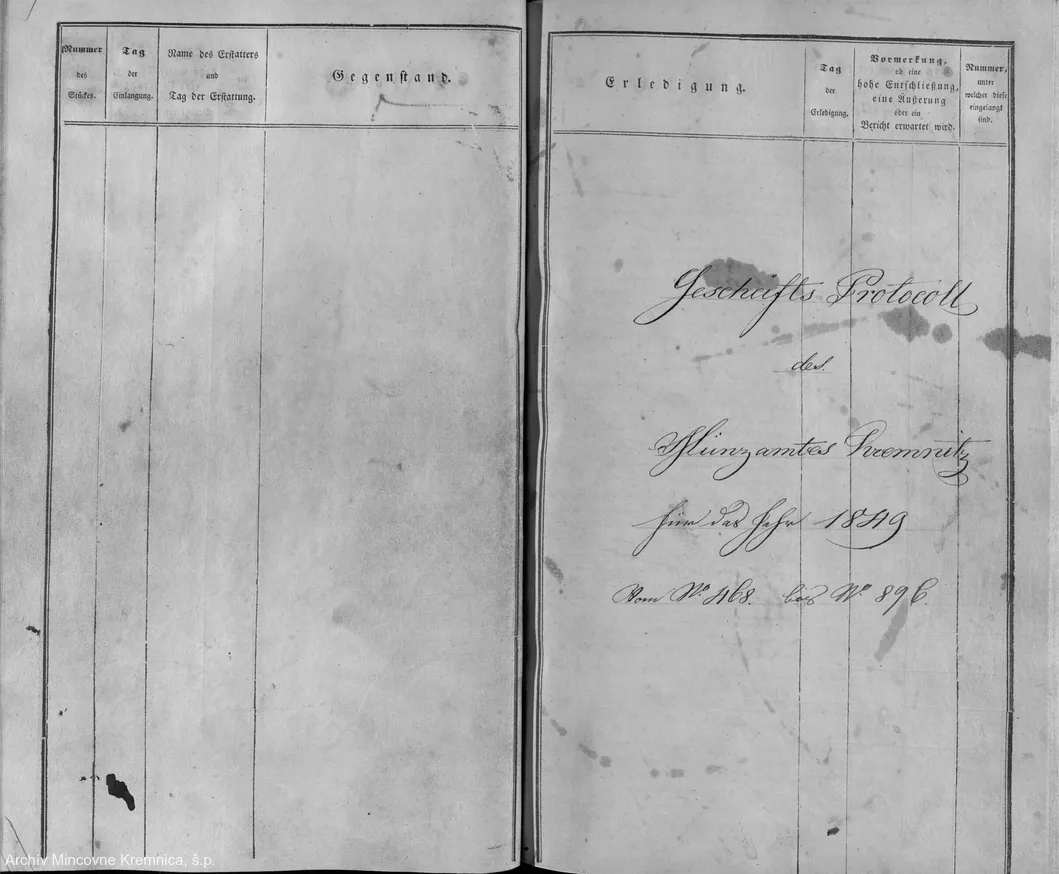 Nummer
des
Stückes.
Tag
der
Einlangung.
Name des Erstatters
und
Tag der Erstattung.
Gegenstand.
Erledigung.
Tag
der
Erledigung.
Vormerkung,
ob eine
hohe Entschließung,
eine Äußerung
oder ein
Bericht erwartet wird.
Nummer,
unter
welcher diese
eingelangt
sind.
Geschäfts Protocoll
des
Münzamtes Kremnitz
für das Jahr 1849
Vom No. 468. bis No. 896.
Archív Mincovne Kremnica, š.p.